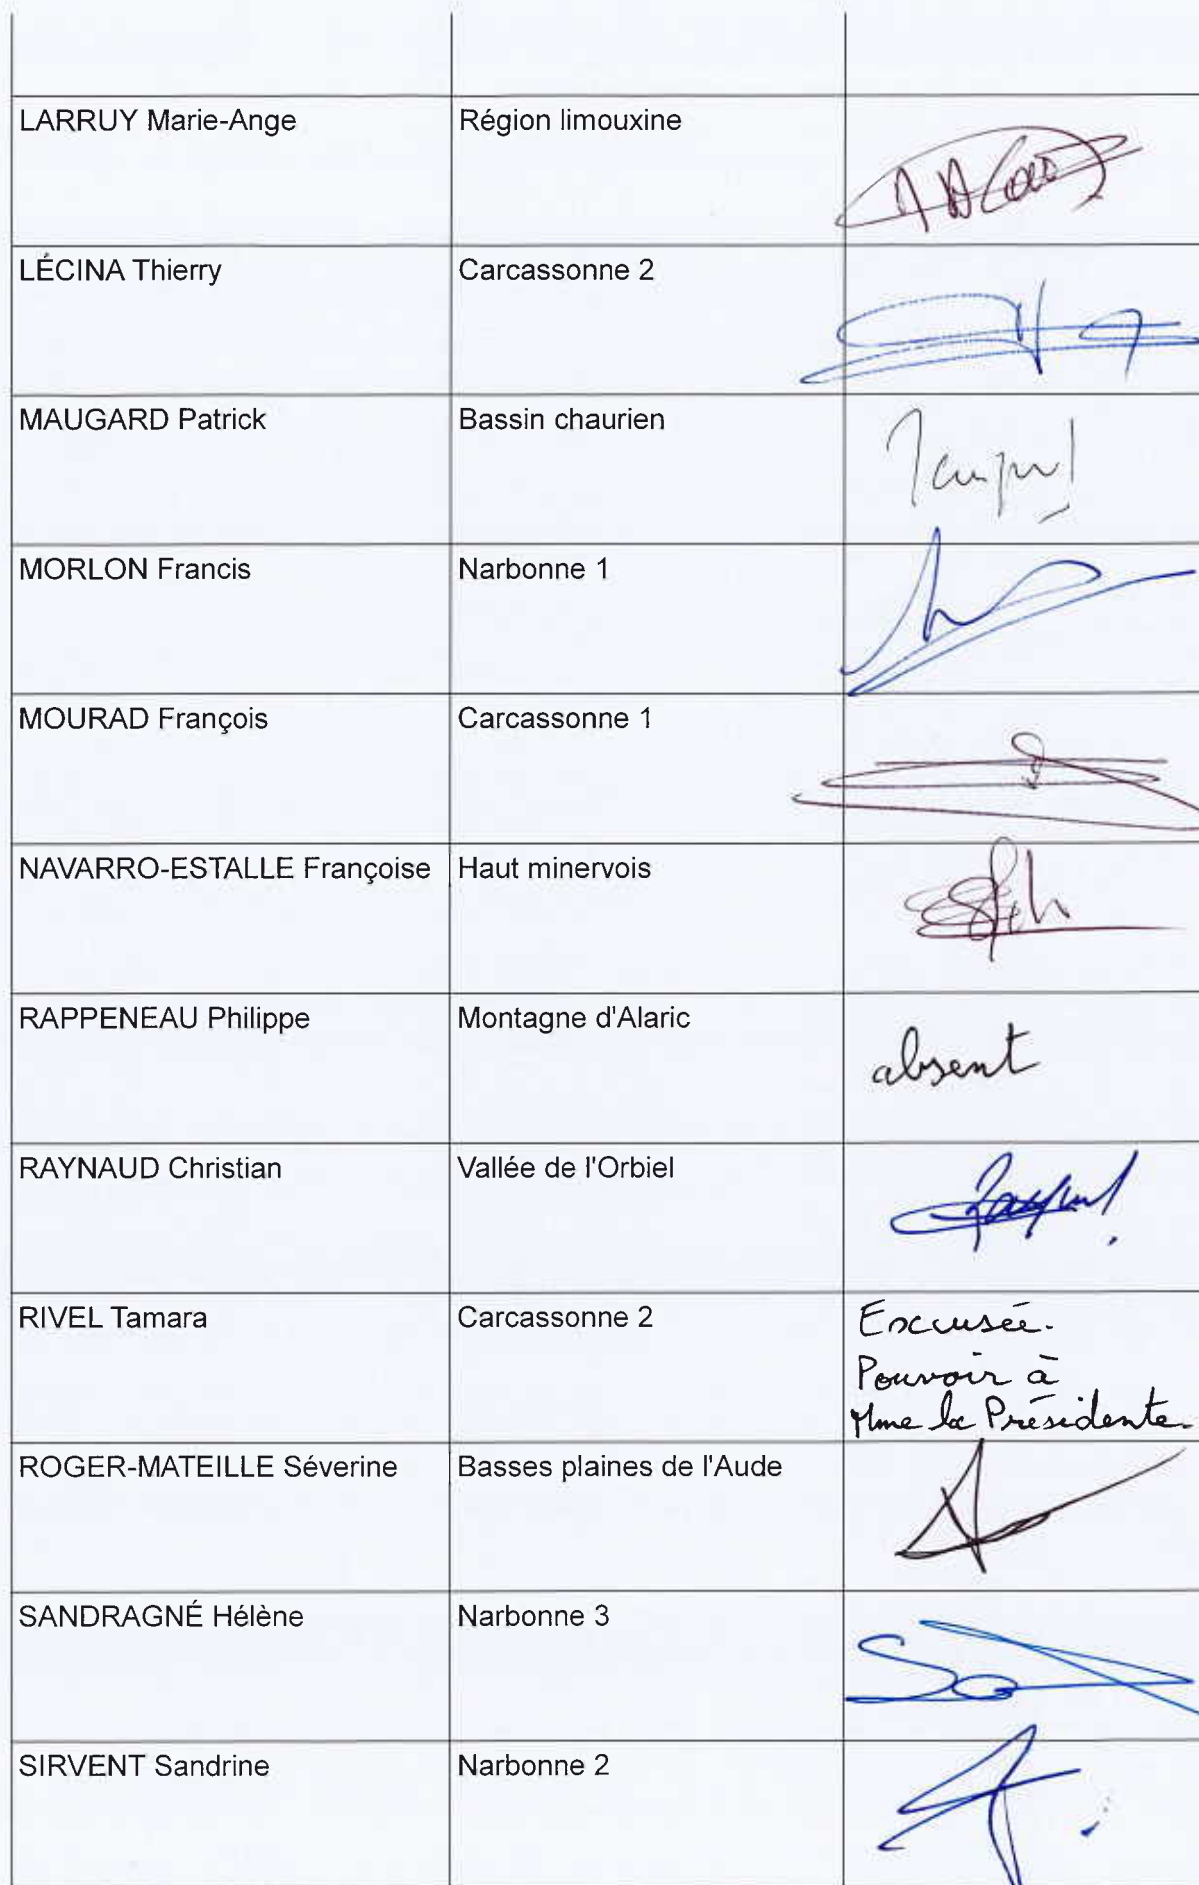 LARRUY Marie-Ange Région limouxine
LÉCINA Thierry Carcassonne 2
MAUGARD Patrick Bassin chaurien
MORLON Francis Narbonne 1
MOURAD François Carcassonne 1
NAVARRO-ESTALLE Françoise Haut minervois
RAPPENEAU Philippe Montagne d'Alaric absent
RAYNAUD Christian Vallée de l'Orbiel
RIVEL Tamara Carcassonne 2 Excusée.
Pouvoir à
Mme la Présidente.
ROGER-MATEILLE Séverine Basses plaines de l'Aude
SANDRAGNÉ Hélène Narbonne 3
SIRVENT Sandrine Narbonne 2